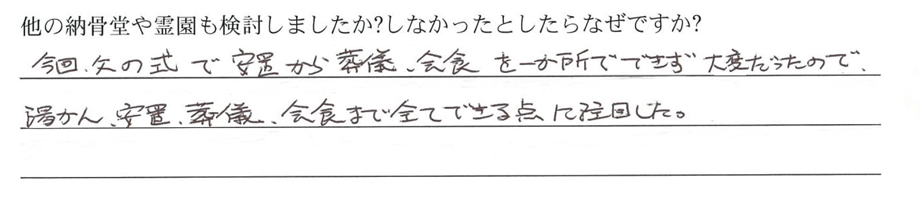 他の納骨堂や霊園も検討しましたか?しなかったとしたらなぜですか?
今回、父の式で安置から葬儀、会食を一か所でできず大変だったので、
湯かん、安置、葬儀、会食まで全てできる点に注目した。